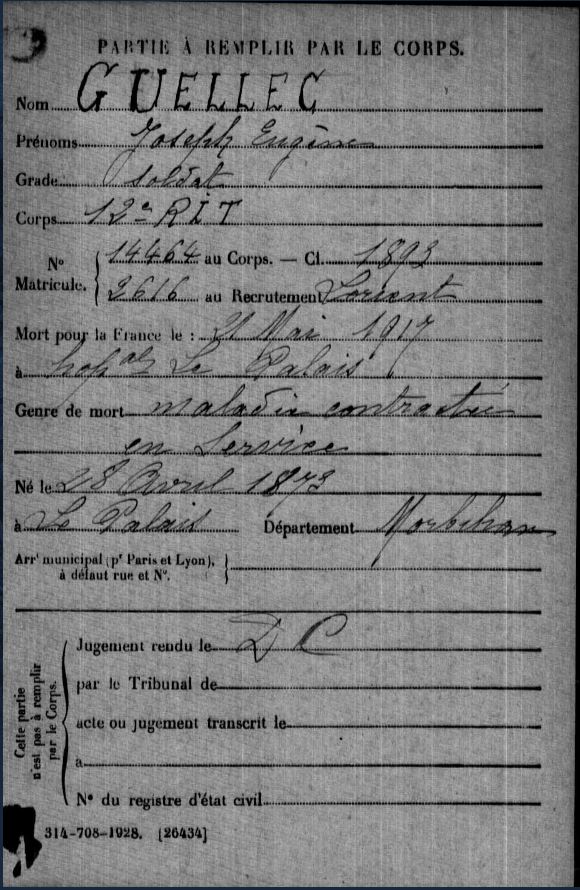 PARTIE À REMPLIR PAR LE CORPS.
Nom GUELLEC
Prénoms Joseph Eugène
Grade soldat
Corps 12e RIT
N° Matricule. 14464 au Corps. — Cl. 1893
2616 au Recrutement Lorient
Mort pour la France le : 21 Mai 1917
à hopal Le Palais
Genre de mort maladie contractée
en Service
Né le 28 Avril 1873
à Le Palais Département Morbihan
Arrt municipal (pr Paris et Lyon),
à défaut rue et N°.
Cette partie
n'est pas à remplir
par le Corps.
Jugement rendu le D C
par le Tribunal de
acte ou jugement transcrit le
à
N° du registre d'état civil
314-708-1928. [26434]